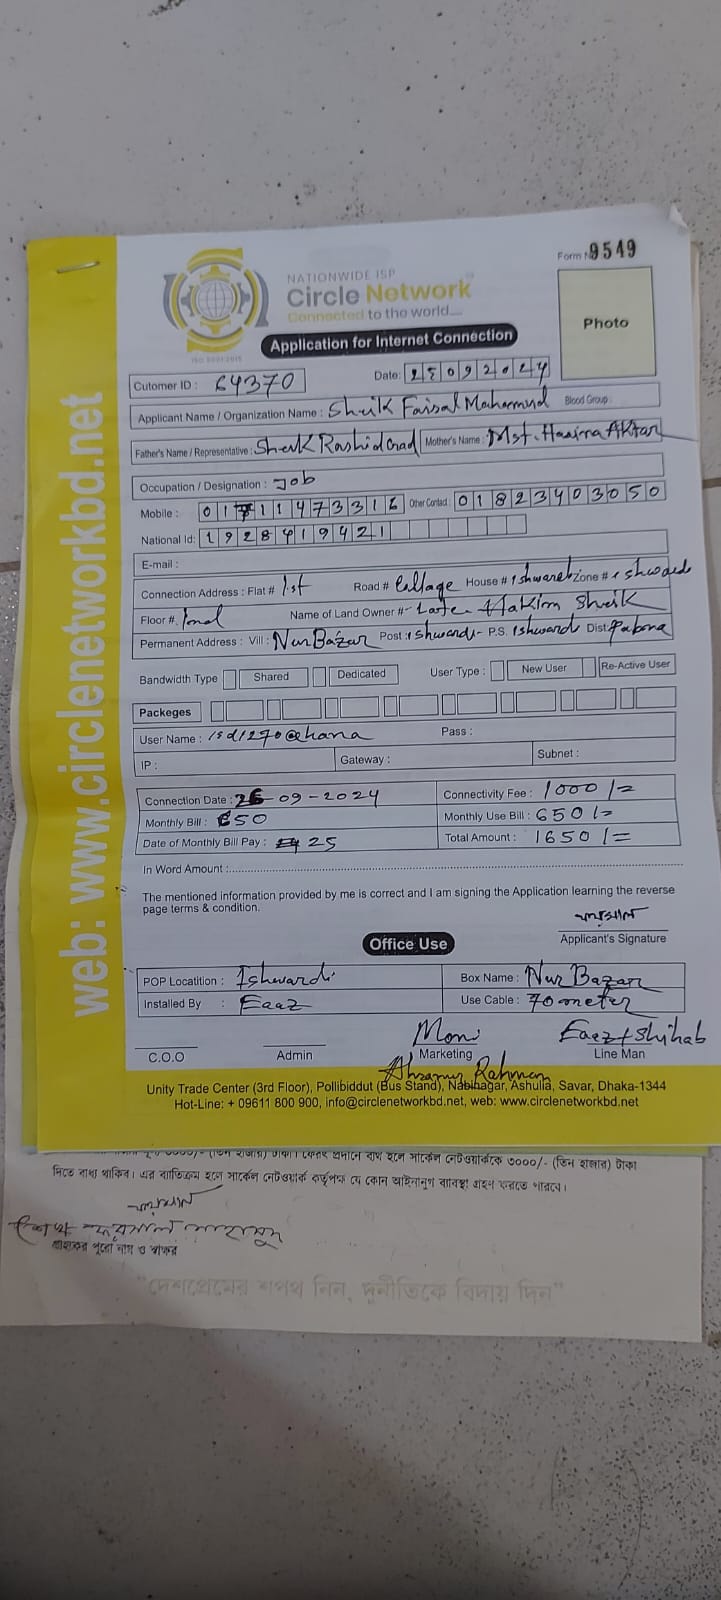 Form N 9549
NATIONWIDE ISP
Circle Network
Connected to the world....
ISO 9001:2015
Application for Internet Connection
Photo
Cutomer ID : 64370 Date: 25092024
Applicant Name / Organization Name : Sheik Faisal Mahamud Blood Group :
Father's Name / Representative : Sheik Rashid Mother's Name : Mst. Aktar
Occupation / Designation : Job
Mobile : 01711473316 Other Contact : 01823403050
National Id: 1928419421
E-mail :
Connection Address : Flat # 1st Road # Collage House # Zone #
Floor #. Name of Land Owner #- Late- Hakim Sheik
Permanent Address : Vill : Nur Bazar Post : Ishwardi- P.S. Ishwardi Dist: Pabna
Bandwidth Type Shared Dedicated User Type : New User Re-Active User
Packeges
User Name : isd1270@hana Pass :
IP : Gateway : Subnet :
Connection Date : 26-09-2024 Connectivity Fee : 1000/=
Monthly Bill : 650 Monthly Use Bill : 650/=
Date of Monthly Bill Pay : 25 Total Amount : 1650/=
In Word Amount :
The mentioned information provided by me is correct and I am signing the Application learning the reverse
page terms & condition.
ফয়সাল
Applicant's Signature
Office Use
POP Locatition : Ishwardi Box Name : Nur Bazar
Installed By : Eaaz Use Cable : 70 meter
Moni Eaaz + Shihab
C.O.O Admin Marketing Line Man
Rahman
Unity Trade Center (3rd Floor), Pollibiddut (Bus Stand), Nabinagar, Ashulia, Savar, Dhaka-1344
Hot-Line: + 09611 800 900, info@circlenetworkbd.net, web: www.circlenetworkbd.net
web: www.circlenetworkbd.net
৩০০০/- (তিন হাজার) টাকা। ফেরৎ প্রদানে ব্যর্থ হলে সার্কেল নেটওয়ার্ককে ৩০০০/- (তিন হাজার) টাকা
দিতে বাধ্য থাকিব। এর ব্যতিক্রম হলে সার্কেল নেটওয়ার্ক কর্তৃপক্ষ যে কোন আইনানুগ ব্যবস্থা গ্রহণ করতে পারবে।
ফয়সাল
শেখ ফয়সাল মাহামুদ
গ্রাহকের পুরো নাম ও স্বাক্ষর
"দেশপ্রেমের শপথ নিন, দুর্নীতিকে বিদায় দিন"